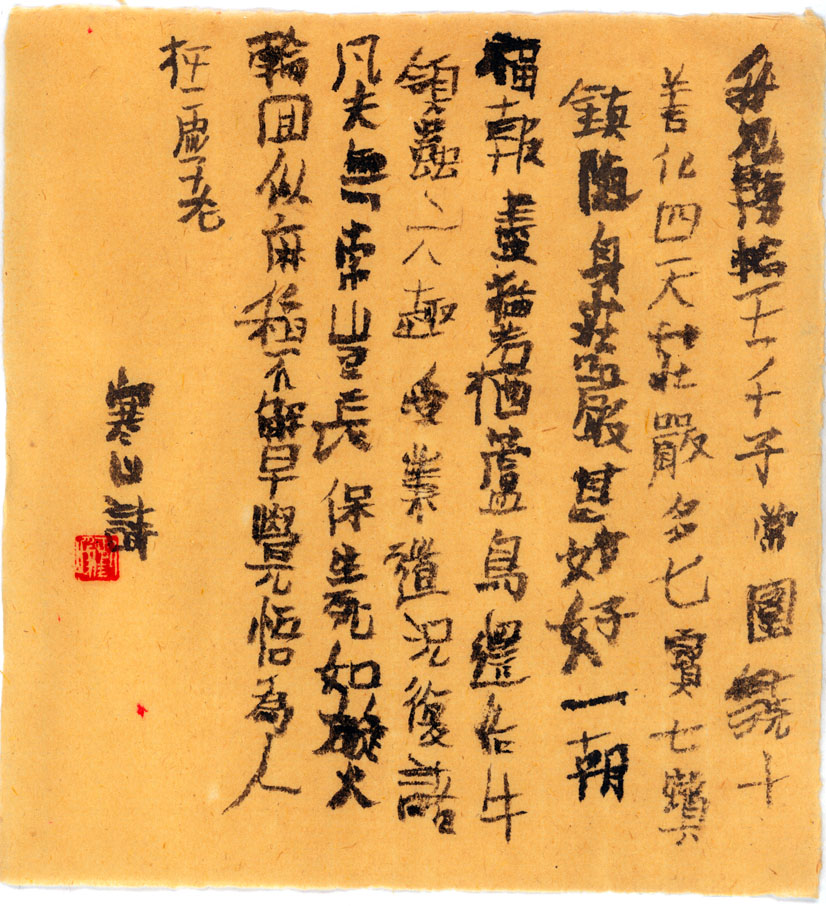 我見轉輪王千子常圍繞十
善化四天莊嚴多七寶七寶
鎮隨身莊嚴甚妙好一朝
福報盡猶若栖蘆鳥還作牛
領蟲六趣受業道況復諸
凡夫無常豈長保生死如旋火
輪回似麻稻不解早覺悟為人
枉虛老
寒山詩